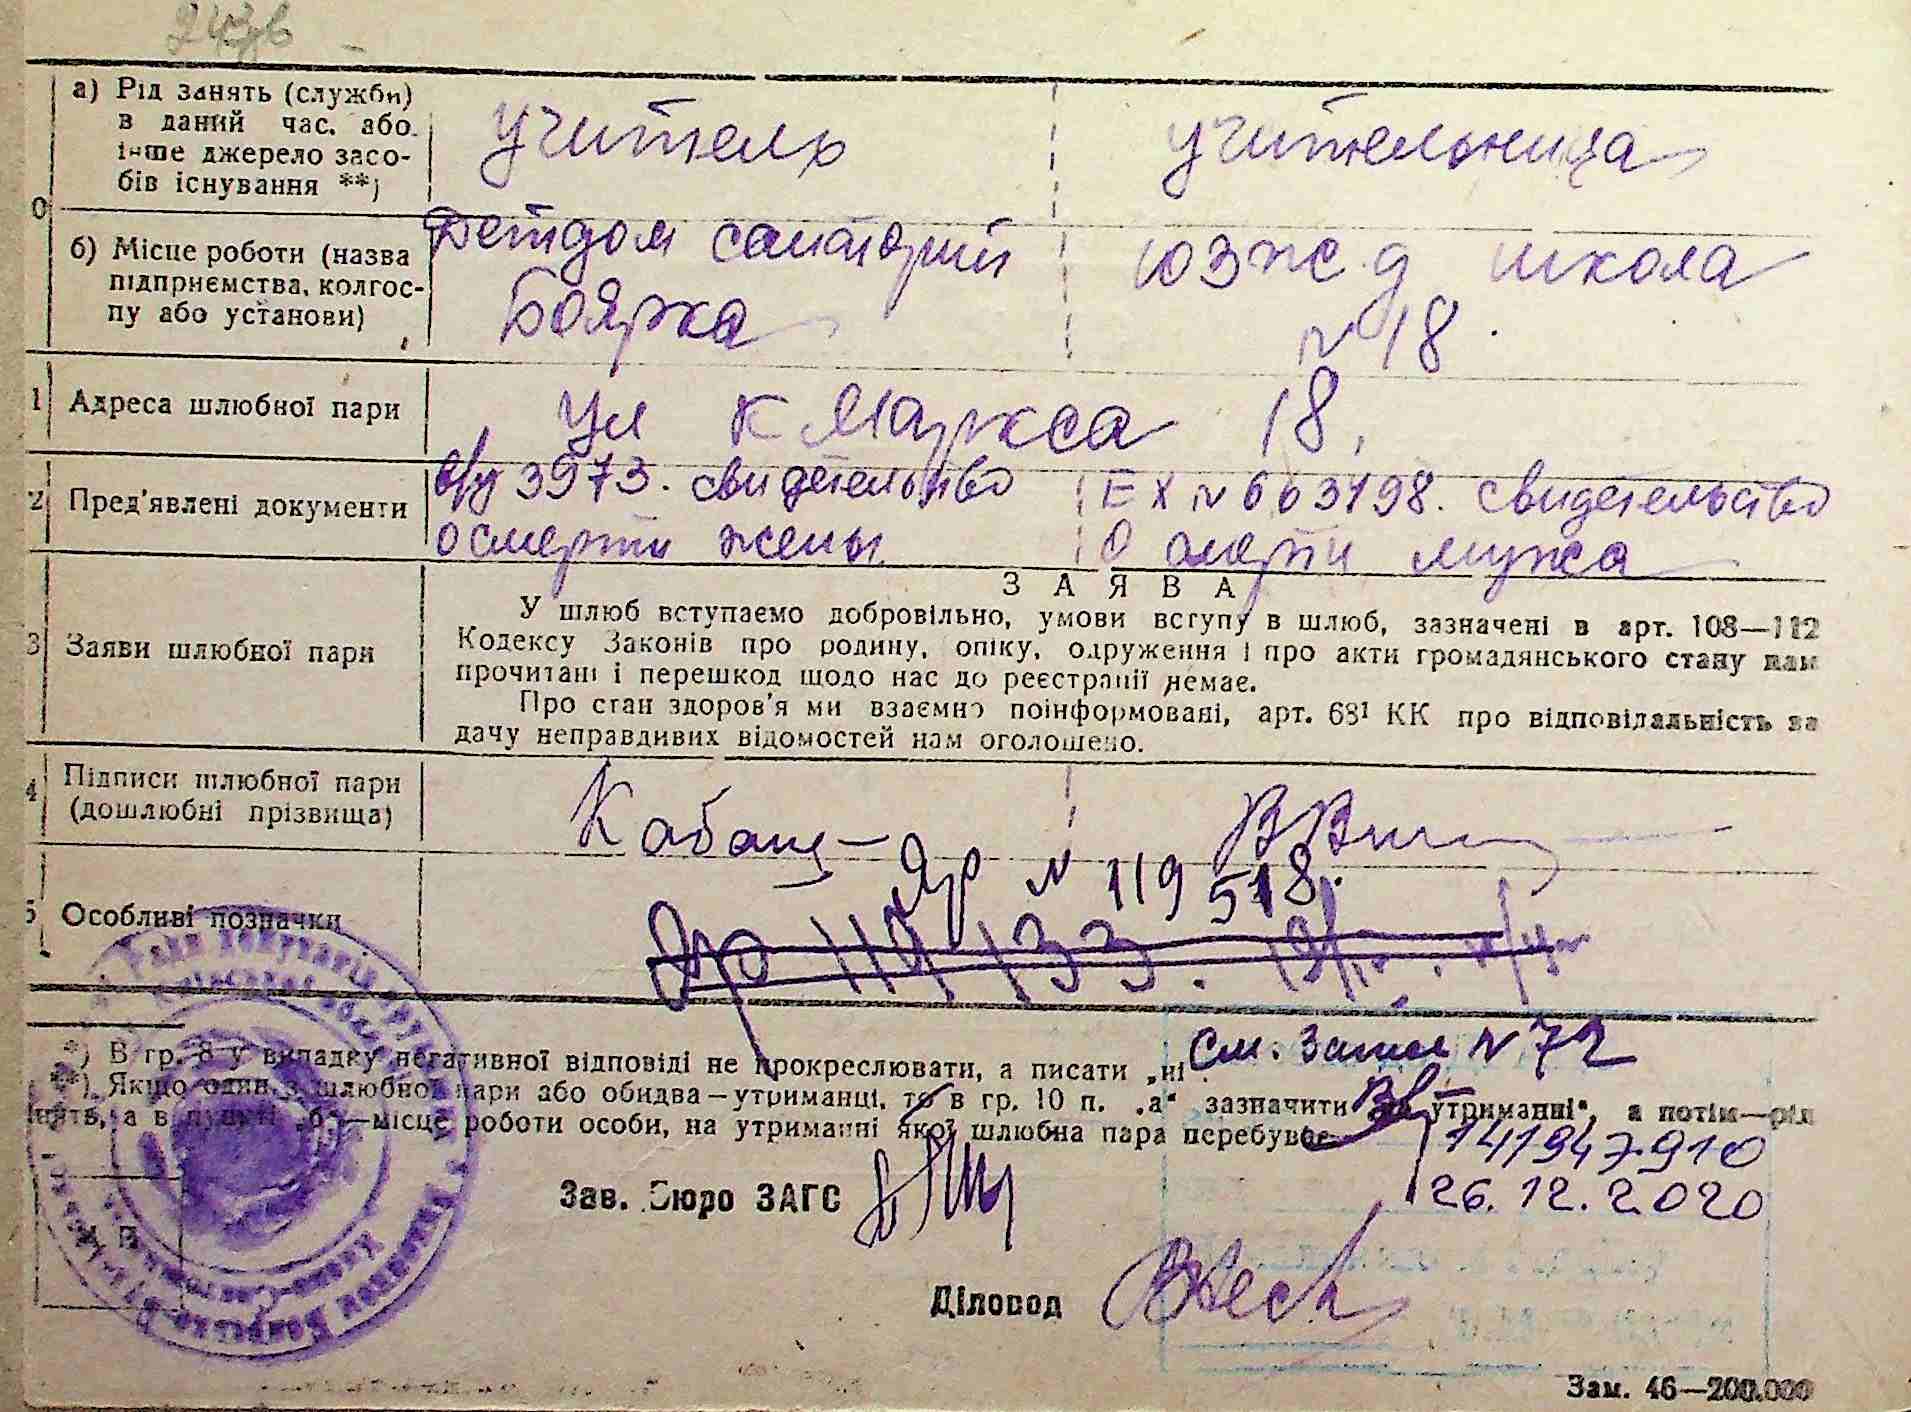 а) Рід занять (служби)
в даний час, або
інше джерело засо-
бів існування **)
учитель
учительница
0
б) Місце роботи (назва
підприємства, колгос-
пу або установи)
Детдом санаторий
Боярка
ЮЗ ж.д школа
№ 18.
1 Адреса шлюбної пари
ул К Маркса 18,
2 Пред'явлені документи
3973. свидетельство
о смерти жены
EX № 663498. свидетельство
о смерти мужа
3 Заяви шлюбної пари
ЗАЯВА
У шлюб вступаємо добровільно, умови вступу в шлюб, зазначені в арт. 108—112
Кодексу Законів про родину, опіку, одруження і про акти громадянського стану нам
прочитані і перешкод щодо нас до реєстрації немає.
Про стан здоров'я ми взаємно поінформовані, арт. 68¹ КК про відповідальність за
дачу неправдивих відомостей нам оголошено.
4 Підписи шлюбної пари
(дошлюбні прізвища)
5 Особливі позначки
Яр № 119518.
*) В гр. 8 у випадку негативної відповіді не прокреслювати, а писати „ні".
См. Запись № 72
**) Якщо один з шлюбної пари або обидва—утриманці, то в гр. 10 п. „а" зазначити „на утриманні", а потім—рід
занять, а в пункті „б"—місце роботи особи, на утриманні якої шлюбна пара перебуває
141947910
26.12.2020
Зав. Бюро ЗАГС
Діловод
Зам. 46—200.000